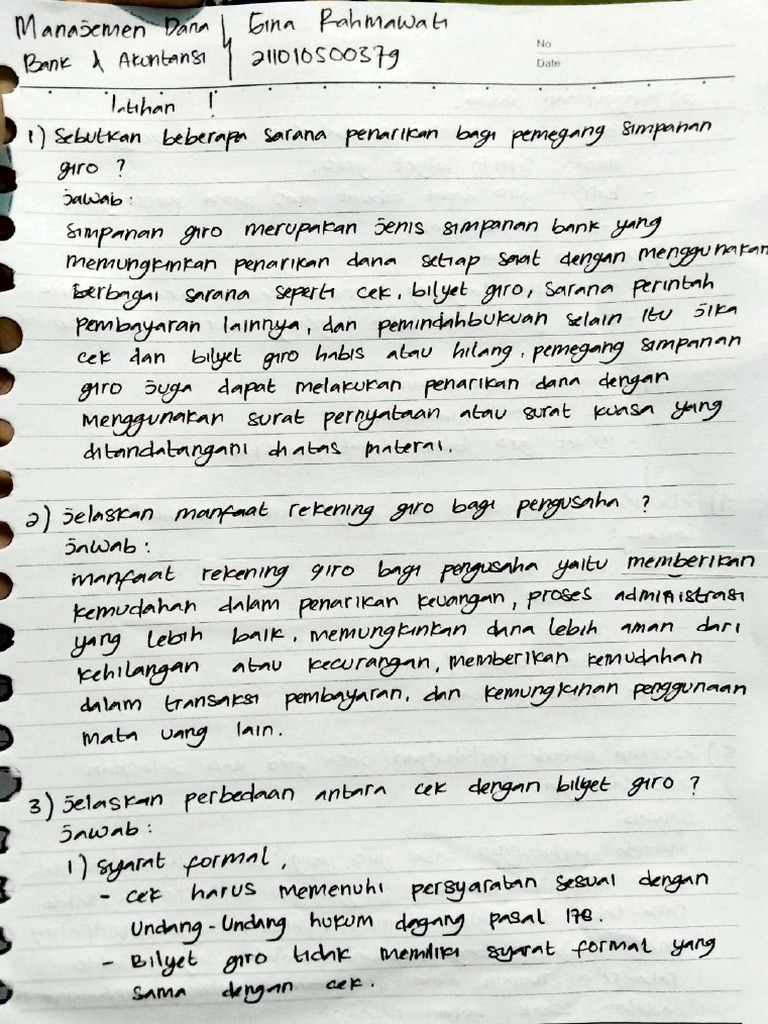 Manajemen Dana
Bank & Akuntansi
Gina Rahmawati
211010500379
No
Date
Latihan !
1) Sebutkan beberapa sarana penarikan bagi pemegang simpanan
giro ?
Jawab :
Simpanan giro merupakan jenis simpanan bank yang
memungkinkan penarikan dana setiap saat dengan menggunakan
berbagai sarana seperti cek, bilyet giro, sarana perintah
pembayaran lainnya, dan pemindahbukuan selain itu jika
cek dan bilyet giro habis atau hilang, pemegang simpanan
giro juga dapat melakukan penarikan dana dengan
menggunakan surat pernyataan atau surat kuasa yang
ditandatangani diatas materai.
2) Jelaskan manfaat rekening giro bagi pengusaha ?
Jawab :
manfaat rekening giro bagi pengusaha yaitu memberikan
kemudahan dalam penarikan keuangan, proses administrasi
yang lebih baik, memungkinkan dana lebih aman dari
kehilangan atau kecurangan, memberikan kemudahan
dalam transaksi pembayaran, dan kemungkinan penggunaan
mata uang lain.
3) Jelaskan perbedaan antara cek dengan bilyet giro ?
Jawab :
1) syarat formal,
- cek harus memenuhi persyaratan sesuai dengan
Undang-Undang hukum dagang pasal 178.
- Bilyet giro tidak memiliki syarat formal yang
sama dengan cek.